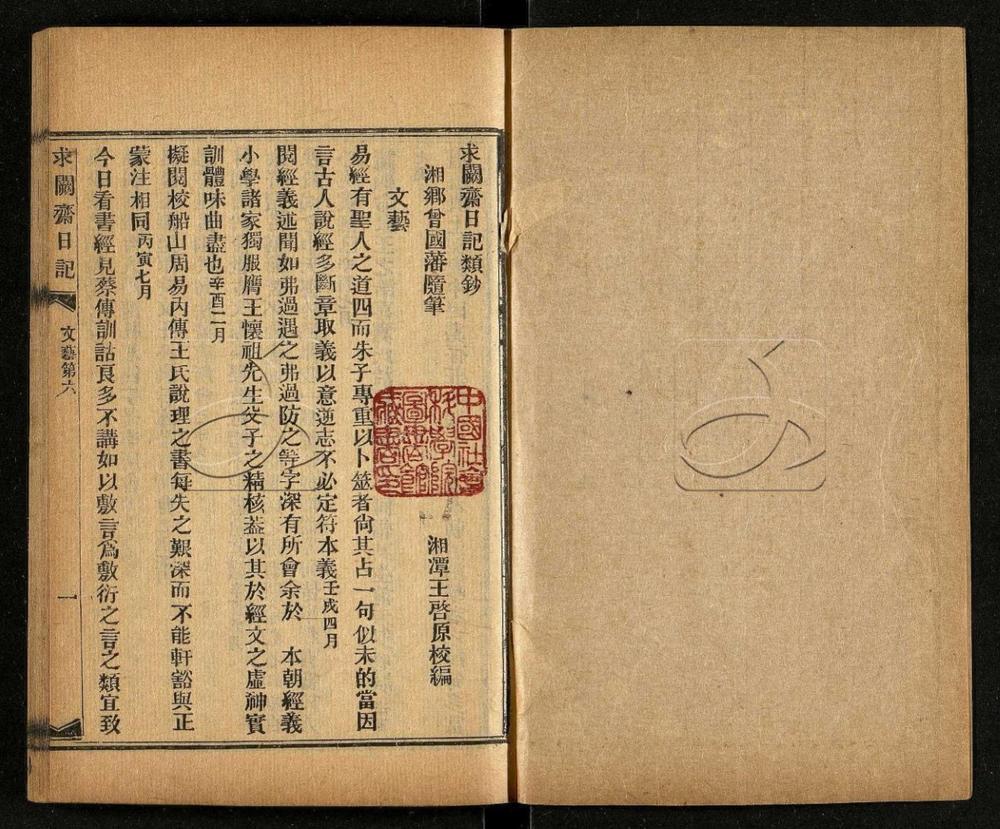 求闕齋日記類鈔
湘鄉曾國藩隨筆 湘潭王啓原校編
文藝
易經有聖人之道四而朱子專重以卜筮者尚其占一句似未的當因
言古人說經多斷章取義以意逆志不必定符本義壬戌四月
閱經義述聞如弗過遇之弗過防之等字深有所會余於 本朝經義
小學諸家獨服膺王懷祖先生父子之精核蓋以其於經文之虛神實
訓體味曲盡也辛酉二月
擬閱校船山周易內傳王氏說理之書每失之艱深而不能軒豁與正
蒙注相同丙寅七月
今日看書經見蔡傳訓詁良多不講如以敷言爲敷衍之言之類宜致
求闕齋日記 文藝第六 一
中國社會
科學院
圖書館
藏書印